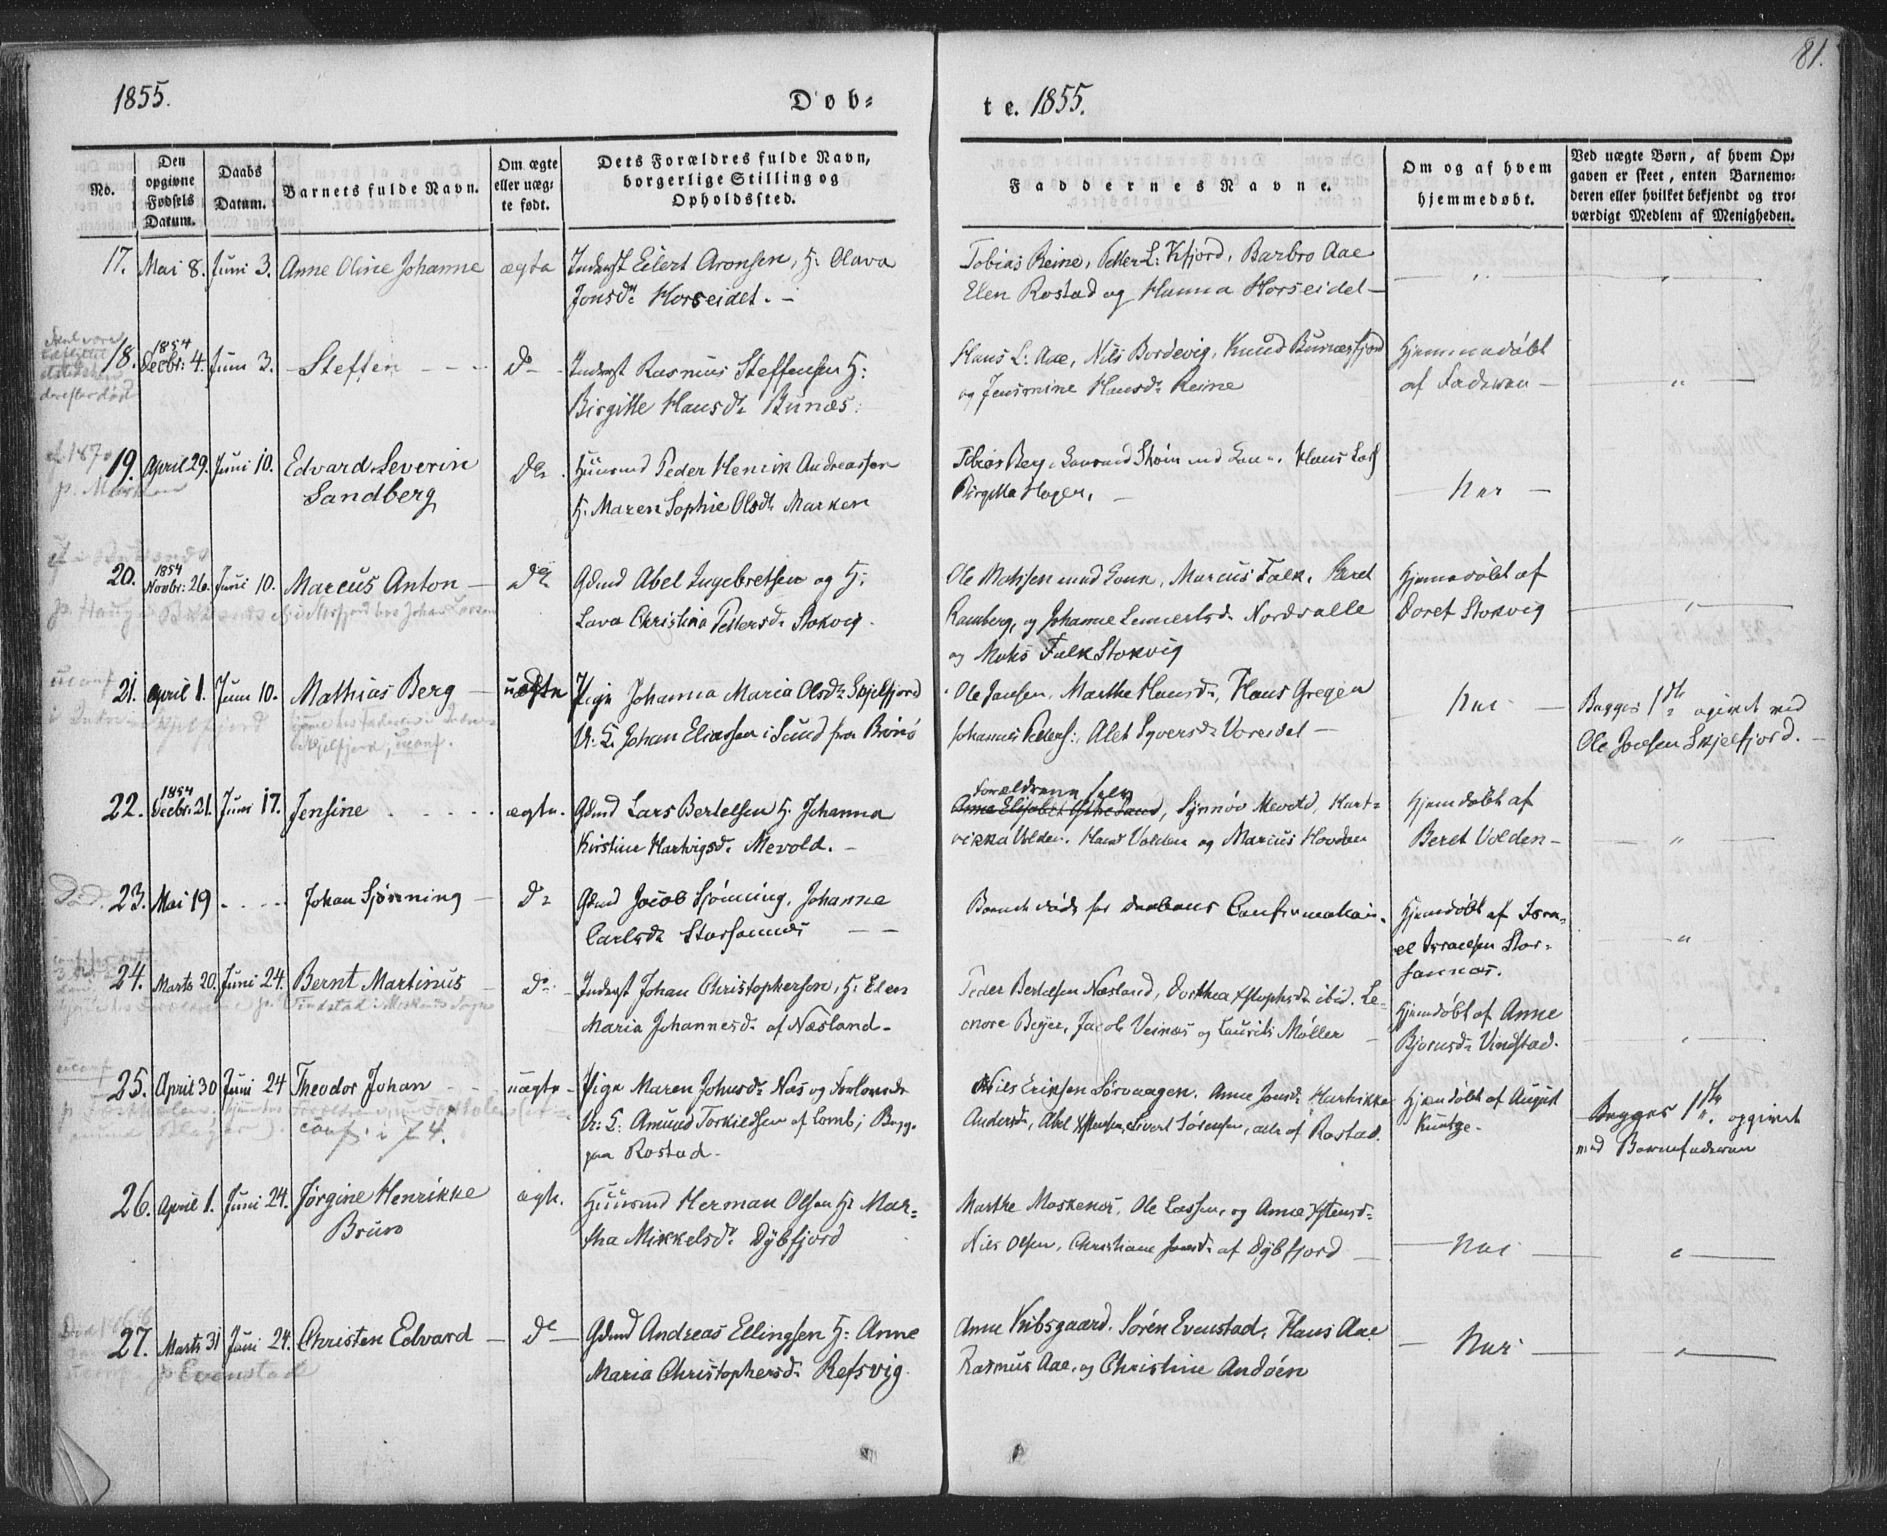 81.
1855.
Døb-
te. 1855.
No.
Den opgivne Fødsels Datum.
Daabs Datum.
Barnets fulde Navn.
Om ægte eller uægte født.
Dets Forældres fulde Navn, borgerlige Stilling og Opholdssted.
Faddernes Navne.
Om og af hvem hjemmedøbt.
Ved uægte Børn, af hvem Opgaven er skeet, enten Barnemoderen eller hvilket bekjendt og troværdigt Medlem af Menigheden.
17. Mai 8. Juni 3. Anne Oline Johanne ægte Inderst Eilert Aronsen, H: Olava
Jonsd. Horseidet. -
Tobias Reine, Peder L: Kfjord, Barbro Aae
Elen Rostad og Hanna Horseidet -
18. 1854 Decbr: 4. Juni 3. Steffen D° Inderst Rasmus Steffensen H:
Birgitte Hansd. Bunæs.
Hans L: Aae, Nils Bordevig, Knud Bunæsfjord
og Jensmine Hansd. Reine
Hjemmedøbt
af Faderen -
19. April 29. Juni 10. Edvard Severin
Sandberg
D° Huusmd Peder Henrik Andreassen
H. Maren Sophie Olsd. Marken
Tobias Berg,
Birgitta Hagen,
- Nei -
20. 1854 Novbr: 26. Juni 10. Marcus Anton - D° Gdmd Abel Ingebretsen og H:
Lava Christina Pedersd. Stokvig.
Ole Mathisen med Kone, Marcus Falk, Beret
Ramberg, og Johanne Lennertsd. Nordvalle
og Mathis Falk Stokvig
Hjemmedøbt af
Doret Stokvig
21. April 1. Juni 10. Mathias Berg - uægte Pige Johanna Maria Olsd. Skjelfjord
U: K. Johan Eliassen i Sund fra Brønø
Ole Jansen, Marthe Hansd., Hans Gregersen
Johannes Peders:, Alet Syversd. Voreidet -
Nei
Begges 1ste opgivet ved
Ole Jansen Skjelfjord.
22. 1854 Decbr: 21. Juni 17. Jensine ægte. Gdmd Lars Bertelsen H. Johanna
Kirstine Hartvigsd. Mevold. -
Forældrene selv
Synnøv Mevold, Hart-
vikka Volden, Hans Volden og Marcus Hovden
Hjemdøbt af
Beret Volden -
23. Mai 19 Johan Sjønning - D° Gdmd Jacob Sjønning, Johanne
Carlsd. Storfannæs
Barnet døde før Daabens Confirmation.
Hjemdøbt af Isra-
el Israelsen Stor-
fannæs.
24. Marts 20. Juni 24. Bernt Martinus D° Inderst Johan Christophersen, H. Elen
Maria Johannesd. af Næsland -
Peder Bertelsen Næsland, Dorthea Xstophsd. ibid. Le-
onore Beyer, Jacob Veinæs og Laurits Møller
Hjemdøbt af Anne
Bjornsd. Vindstad.
25. April 30 Juni 24 Theodor Johan uægte - Pige Maren Johnsd. Næs og Forlovede
U: K: Amund Torkildsen af Lomb; Begge
paa Rostad -
Nils Eriksen Sørvaagen, Anne Jonsd. Hartvikke
Andersd., Abel Xstensen, Sivert Sørensen, alle af Rostad.
Hjemdøbt af August
Kuntze -
Begges 1ste opgivet
med Barnefaderen
26. April 1. Juni 24. Jørgine Henrikke
Bruvo
ægte. Huusmd Herman Olsen H: Mar-
tha Mikkelsd. Dybfjord
Marthe Moskenes, Ole Lassen, og Anne Xstensd.
Nils Olsen, Christiane Jonsd. af Dybfjord -
Nei
27. Marts 31 Juni 24. Christen Edvard - D° - Gdmd Andreas Ellingsen H: Anne
Maria Christophersd. Refsvig.
p. Evenstad
Anne Kibsgaard, Søren Evenstad, Hans Aae
Rasmus Aae, og Christine Andøen
- Nei -